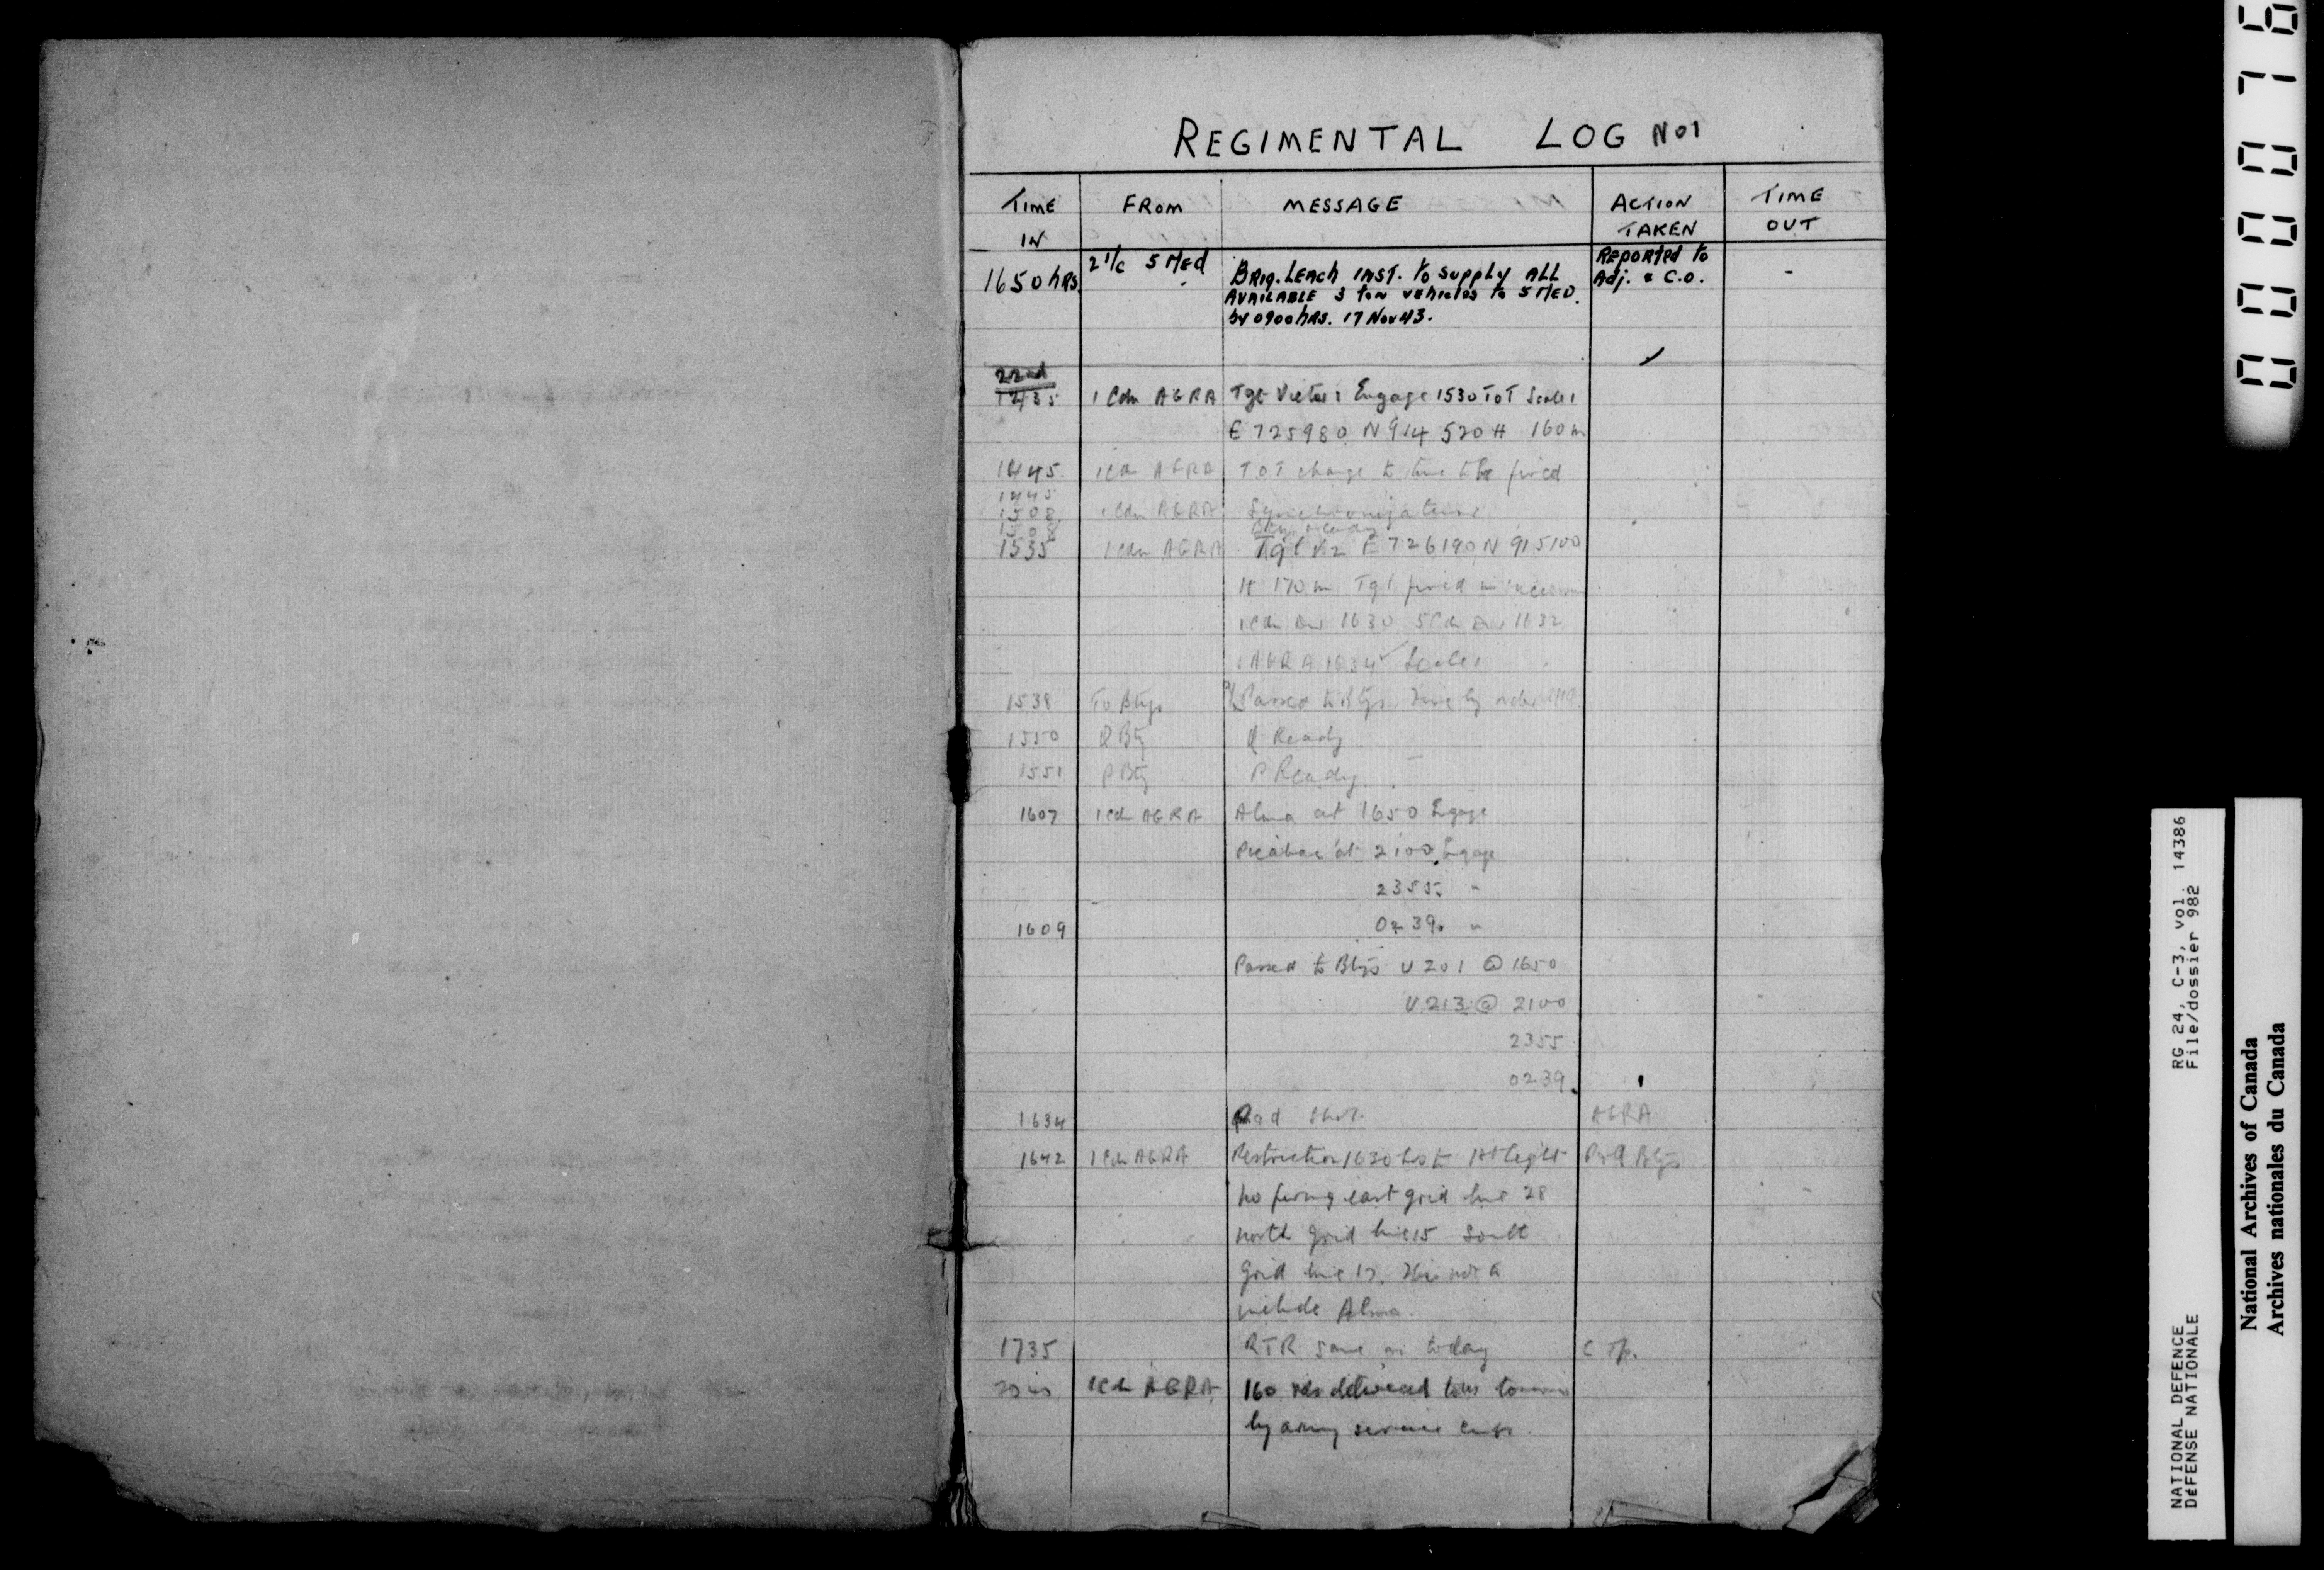 REGIMENTAL LOG No 1
TIME IN FROM MESSAGE ACTION TAKEN TIME OUT
1650 hRS. 2 I/c 5 MEd BRIG. LEACh INST. to supply ALL Reported to -
AVAILABLE 3 ton vehicles to 5 MED. Adj. & C.O.
by 0900 hRS. 17 Nov 43.
22nd
1435 1 Cdn AGRA Tgt Victor 1 Engage 1530 ToT Scale 1
E 725980 N 914520 H 160 m
1445 1 Cdn AGRA TOT change to time to be fired
1445
1508 1 Cdn AGRA Synchronization
1508 Btys ready
1535 1 Cdn AGRA Tgt V2 E 726190 N 915100
H 170 m Tgt fired in
1 Cdn Div 1630 5 Cdn Div 1632
1 AGRA 1634 Scale 1
1538 To Btys Passed to Btys
1550 Q Bty Q Ready
1551 P Bty P Ready
1607 1 Cdn AGRA Alma at 1650 Engage
at 2100 Engage
2355 "
1609 0239 "
Passed to Btys U 201 @ 1650
U 213 @ 2100
2355
0239
1634 shot AGRA
1642 1 Cdn AGRA Restriction 1630 hrs to 1st light P & Q Btys
No firing east grid line 28
north grid line 15 South
Grid line 17. not to
include Alma.
1735 RTR same as today C Tp.
1 Cdn AGRA 160 rds delivered
by army service
0000076
NATIONAL DEFENCE RG 24, C-3, vol. 14386
DÉFENSE NATIONALE File/dossier 982
National Archives of Canada
Archives nationales du Canada